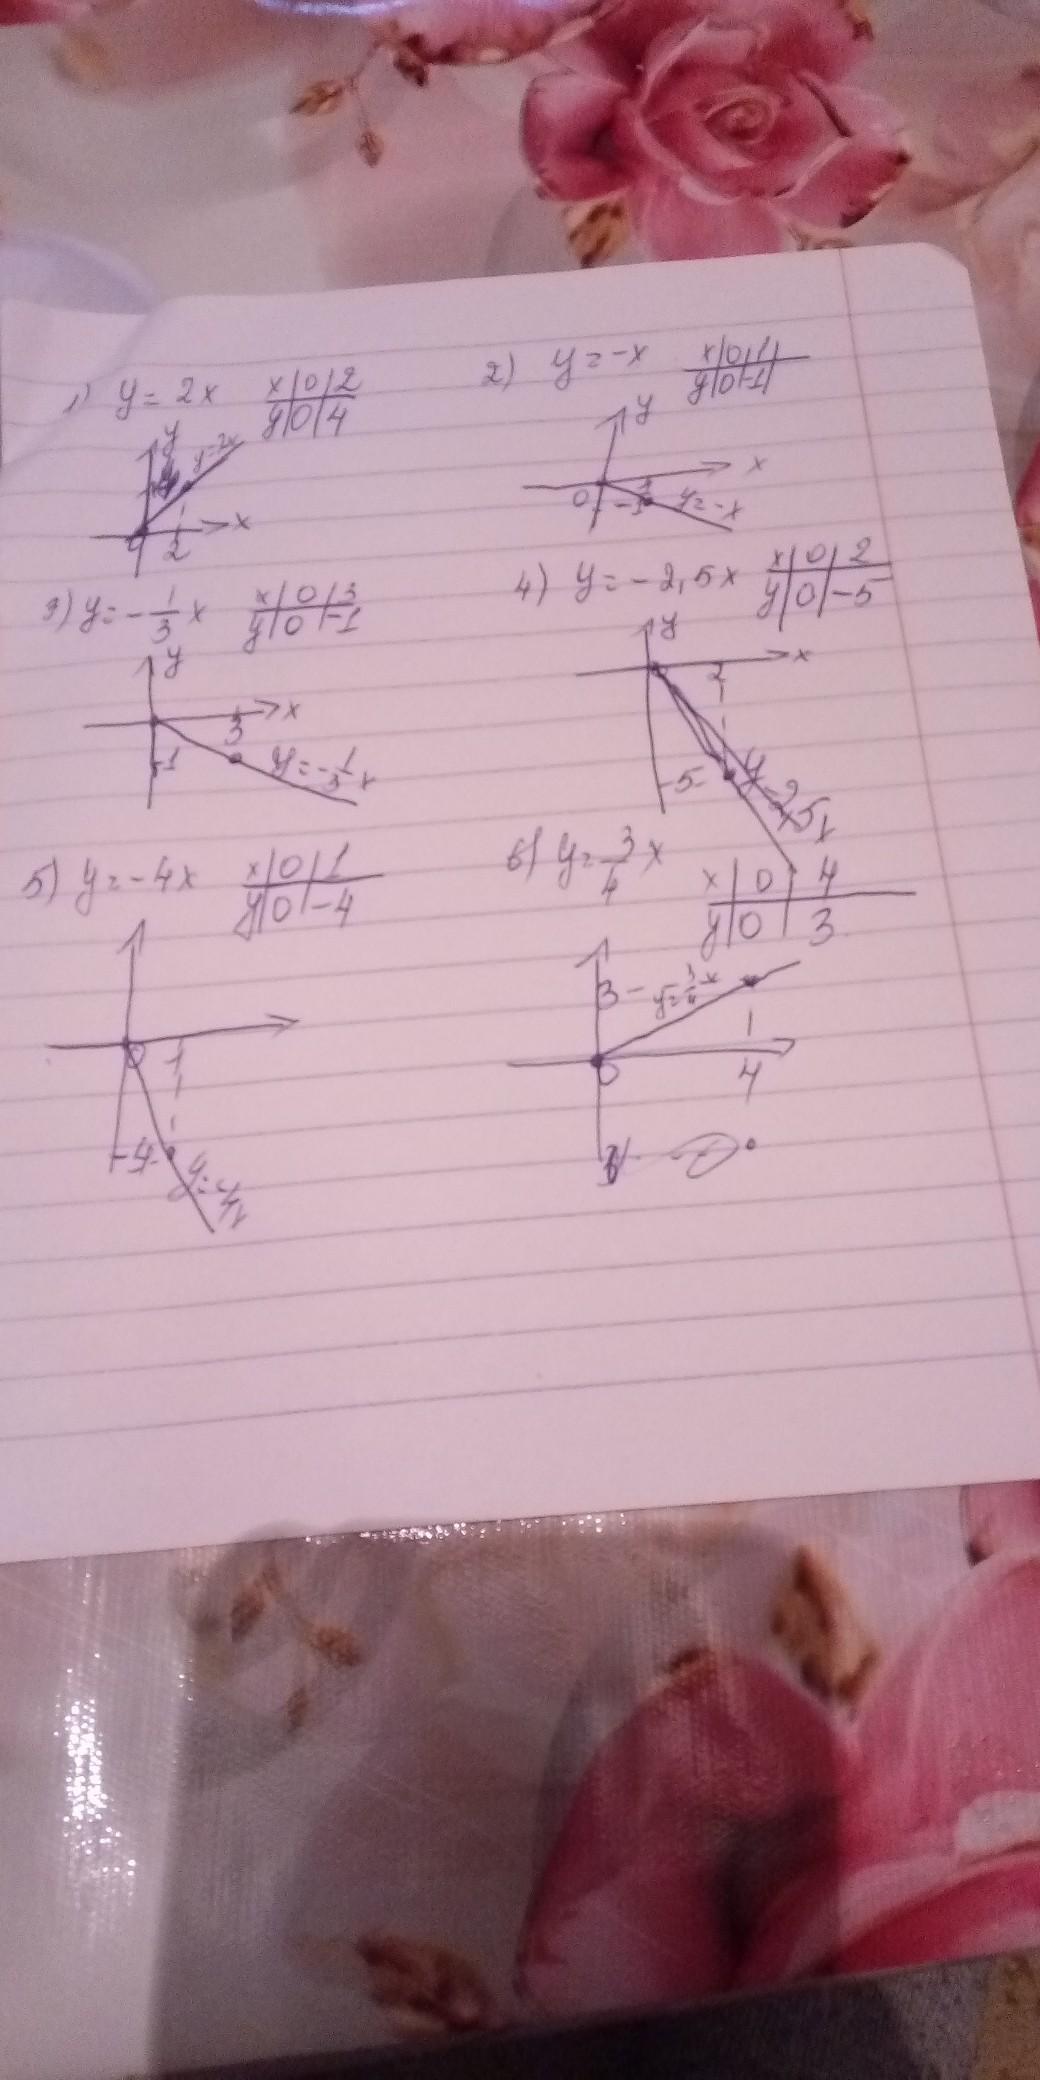 1) y = 2x x|0|2
y|0|4
y
y=2x
x
0 2
2) y = -x x|0|1
y|0|-1
y
x
0 -1 1 y=-x
3) y = -1/3 x x|0|3
y|0|-1
y
x
3
-1 y=-1/3 x
4) y = -2,5x x|0|2
y|0|-5
y
x
2
-5
5) y = -4x x|0|1
y|0|-4
0 1
-4
6) y = 3/4 x
x|0|4
y|0|3
3 y=3/4 x
0 4